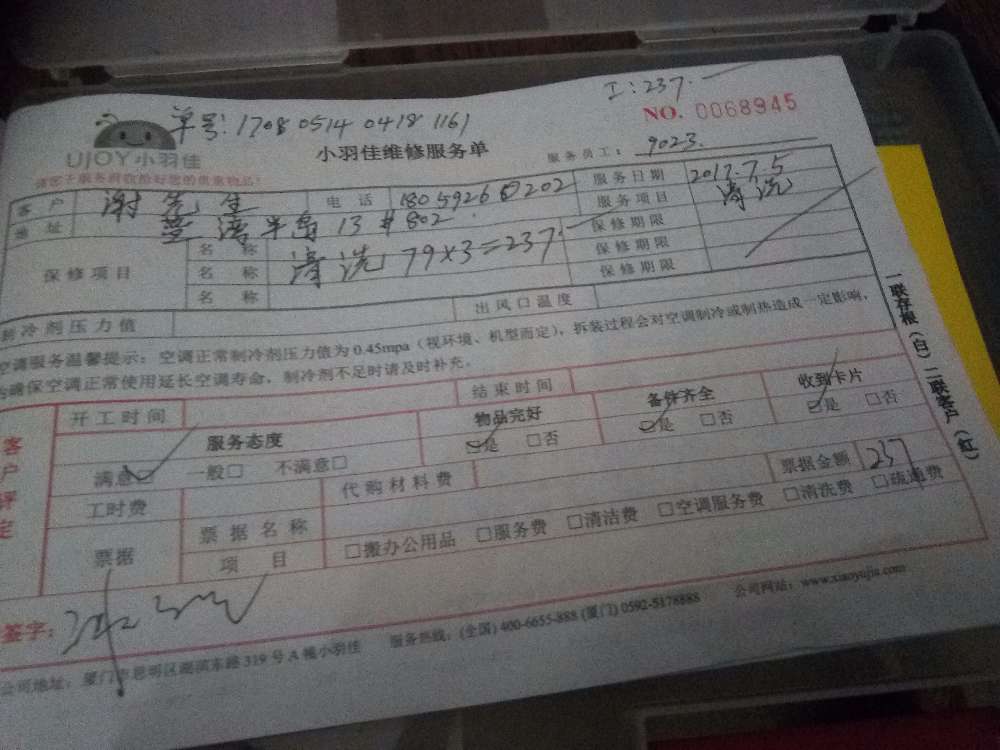 工:237.一
单号:1708 0514 0418 1161
NO. 0068945
UJOY小羽佳
小羽佳维修服务单
服务员工: 9023.
客户 谢先生 电话 服务日期 2017.7.5
地址 半岛13#802 服务项目 清洗
保修项目 名称 清洗 79×3=237.一 保修期限
名称 保修期限
名称 保修期限
制冷剂压力值 出风口温度
空调服务温馨提示:空调正常制冷剂压力值为0.45mpa(视环境、机型而定),拆装过程会对空调制冷或制热造成一定影响,
为确保空调正常使用延长空调寿命,制冷剂不足时请及时补充。
客户评定
开工时间 结束时间
服务态度 物品完好 备件齐全 收到卡片
满意☑ 一般□ 不满意□ ☑是 □否 ☑是 □否 ☑是 □否
工时费 代购材料费 票据金额 237
票据 票据名称
项目 □搬办公用品 □服务费 □清洁费 □空调服务费 □清洗费 □疏通费
签字:
公司地址:厦门市思明区湖滨东路319号A栋小羽佳 服务热线:(全国)400-6655-888 (厦门)0592-5178888 公司网站:www.xiaoyujia.com
一联存根(白)二联客户(红)